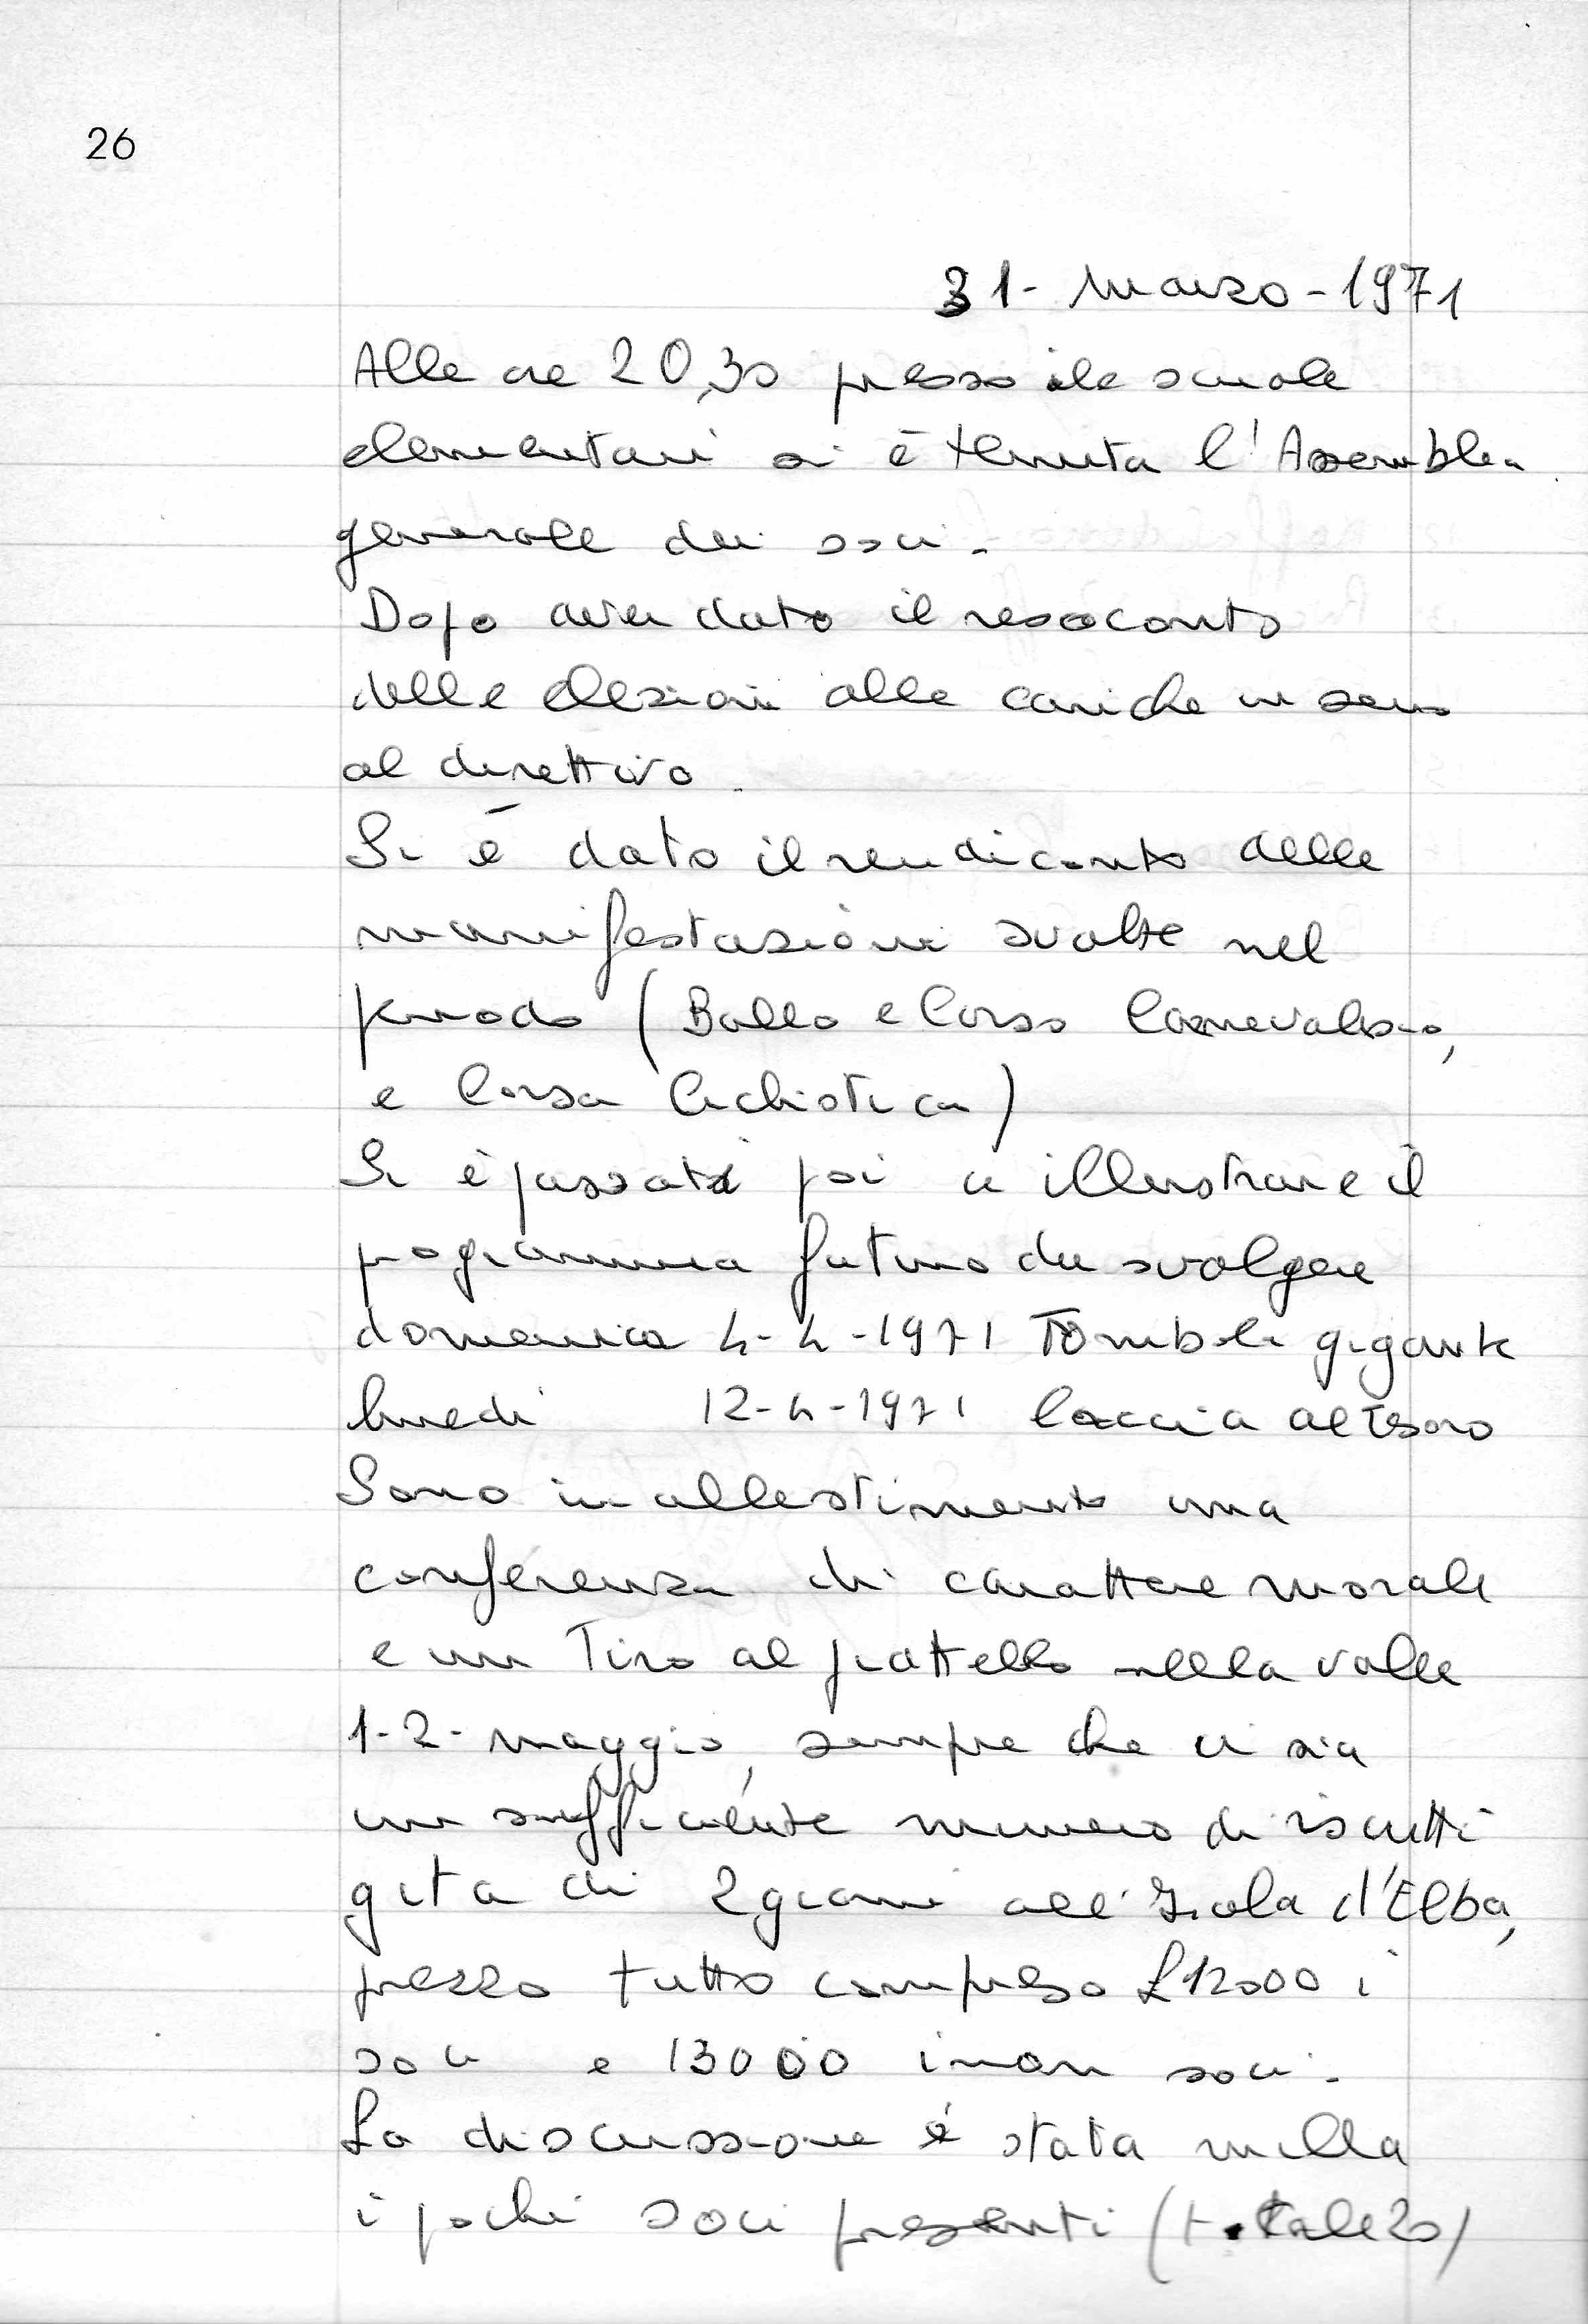 26
31 - Marzo - 1971
Alle ore 20,30 presso ile scuole
elementari si è tenuta l'Assemblea
generale dei soci.
Dopo aver dato il resoconto
delle elezioni alle cariche in seno
al direttivo.
Si è dato il rendiconto delle
manifestazioni svolte nel
periodo (Ballo e Corso Carnevalesco,
e Corsa Ciclistica)
Si è passati poi a illustrare il
programma futuro da svolgere
domenica 4-4-1971 Tombola gigante
lunedì 12-4-1971 Caccia al Tesoro
Sono in allestimento una
conferenza di carattere morale
e un Tiro al piattello nella valle
1-2- maggio, sempre che ci sia
un sufficiente numero di iscritti
gita di 2 giorni all'Isola d'Elba,
prezzo tutto compreso £ 12000 i
soci e 13000 i non soci.
La discussione è stata nulla
i pochi soci presenti (totale 20)